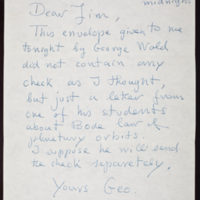 midnight
Dear Jim,
This envelope given to me
tonight by George Wald
did not contain any
check as I thought,
but just a letter from
one of his students
about Bode law of
planetary orbits.
I suppose he will send
the check separetely.
Yours Geo.